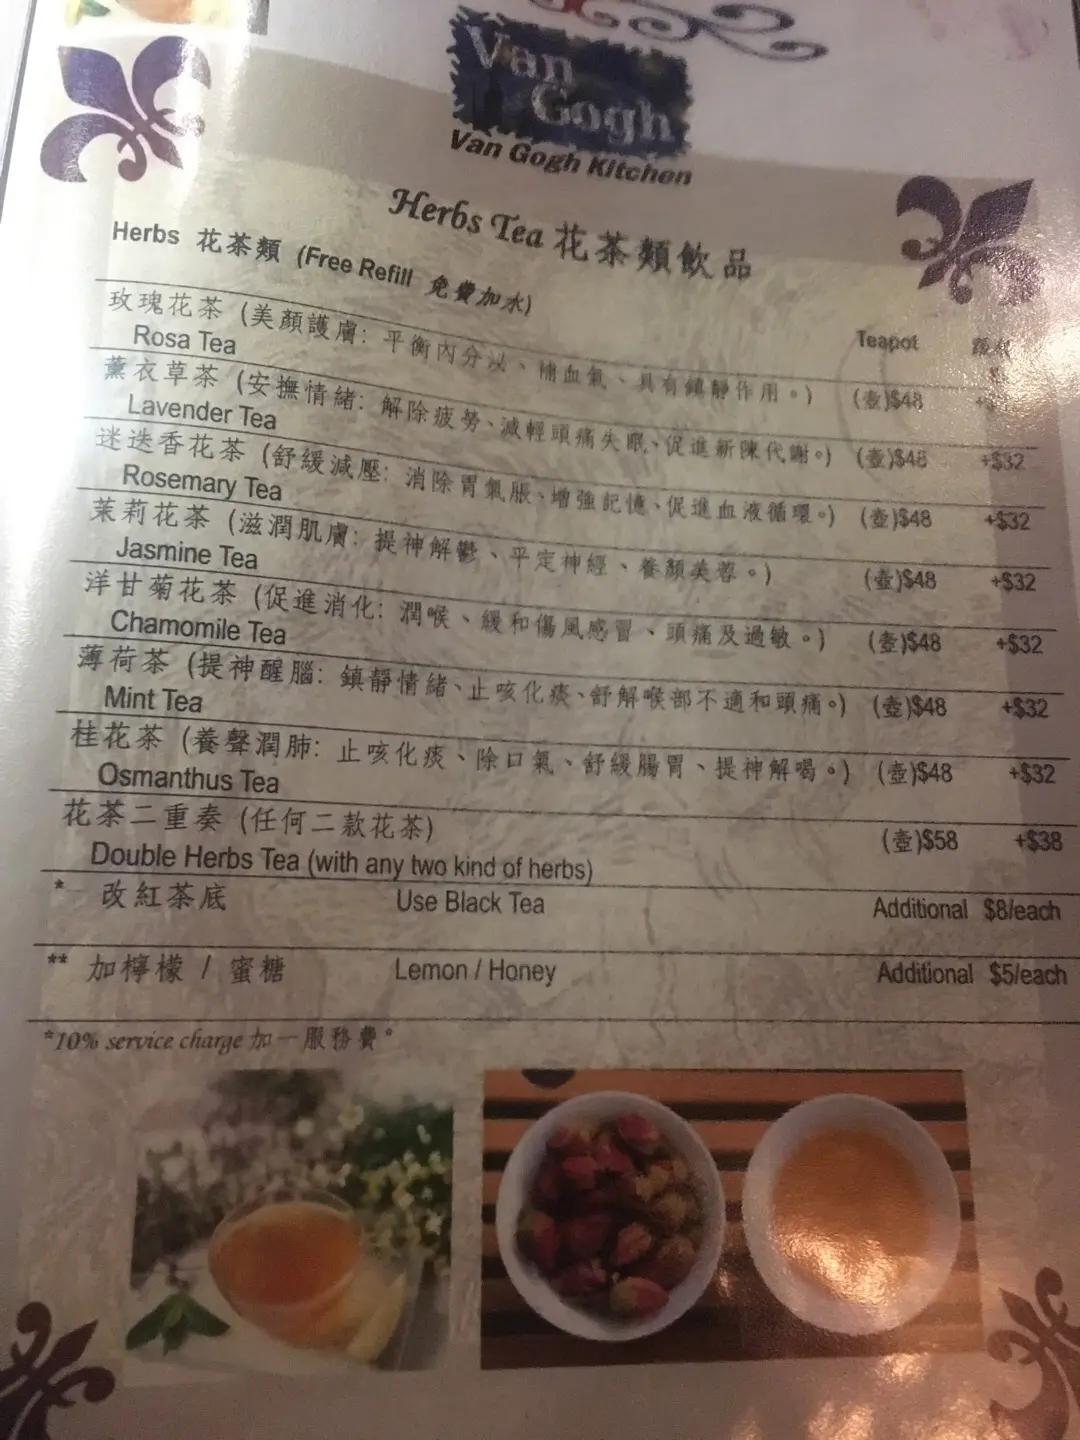 Van
Gogh
Van Gogh Kitchen
Herbs Tea 花茶類飲品
Herbs 花茶類 (Free Refill 免費加水)
Teapot
玫瑰花茶 (美顏護膚: 平衡內分泌、補血氣、具有鎮靜作用。) (壺)$48
Rosa Tea
薰衣草茶 (安撫情緒: 解除疲勞、減輕頭痛失眠、促進新陳代謝。) (壺)$48 +$32
Lavender Tea
迷迭香花茶 (舒緩減壓: 消除胃氣脹、增強記憶、促進血液循環。) (壺)$48 +$32
Rosemary Tea
茉莉花茶 (滋潤肌膚: 提神解鬱、平定神經、養顏美蓉。) (壺)$48 +$32
Jasmine Tea
洋甘菊花茶 (促進消化: 潤喉、緩和傷風感冒、頭痛及過敏。) (壺)$48 +$32
Chamomile Tea
薄荷茶 (提神醒腦: 鎮靜情緒、止咳化痰、舒解喉部不適和頭痛。) (壺)$48 +$32
Mint Tea
桂花茶 (養聲潤肺: 止咳化痰、除口氣、舒緩腸胃、提神解喝。) (壺)$48 +$32
Osmanthus Tea
花茶二重奏 (任何二款花茶) (壺)$58 +$38
Double Herbs Tea (with any two kind of herbs)
* 改紅茶底 Use Black Tea Additional $8/each
** 加檸檬 / 蜜糖 Lemon / Honey Additional $5/each
*10% service charge 加一服務費*